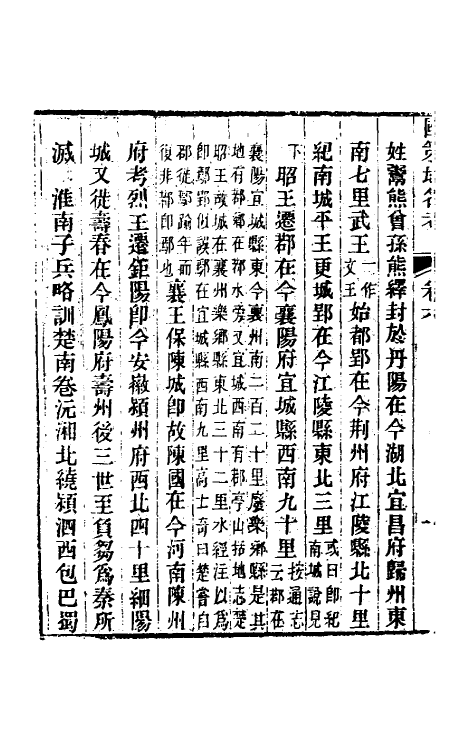 國策地名考 卷六 一
姓鬻熊曾孫熊繹封於丹陽在今湖北宜昌府歸州東
南七里武王一作文王始都郢在今荆州府江陵縣北十里
紀南城平王更城郢在今江陵縣東北三里或曰郎紀南城說見
下昭王遷鄀在今襄陽府宜城縣西南九十里按通志云鄀在
襄陽宜城縣東今襄州南二百二十里廢樂鄉縣是其
地有鄀鄉在鄀水旁又宜城西南有鄀亭山括地志楚
昭王故城在襄州樂鄉縣東北三十二里水經注以爲
即鄢郢但誤鄀在宜城縣西南九里高士奇曰楚嘗自
鄀徙鄢踰年而復非鄀即鄢也襄王保陳城卽故陳國在今河南陳州
府考烈王遷鉅陽卽今安徽潁州府西北四十里細陽
城又徙壽春在今鳳陽府壽州後三世至負芻爲秦所
滅 淮南子兵略訓楚南卷沅湘北繞潁泗西包巴蜀